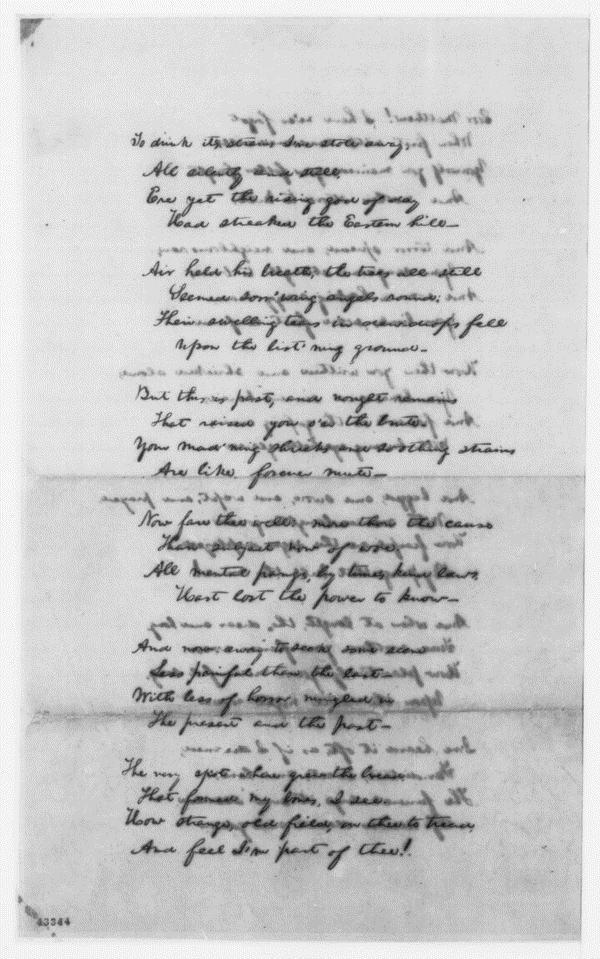 To drink its strains I've stole away,
All silently and still,
Ere yet the rising god of day
Had streaked the Eastern hill—
Air held his breath; the trees all still
Seemed sorr'wing angels round,
Their swelling tears in dew-drops fell
Upon the list'ning ground—
But this is past, and nought remains
That raised you o'er the brute.
Your mad'ning shrieks and soothing strains
Are like forever mute—
Now fare thee well: more thou the cause
Than subject now of woe.
All mental pangs, by time's kind laws,
Hast lost the power to know—
And now away to seek some scene
Less painful than the last—
With less of horror mingled in
The present and the past—
The very spot where grew the bread
That formed my bones, I see
How strange, old field, on thee to tread
And feel I'm part of thee!
43344